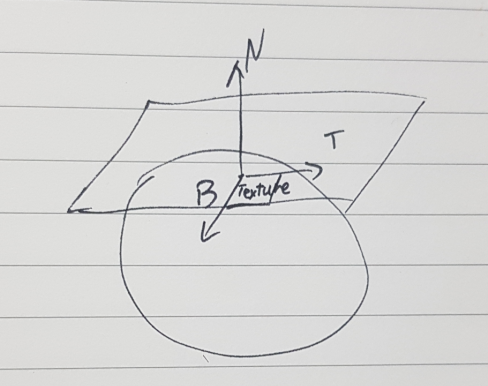 N
T
B
Texture